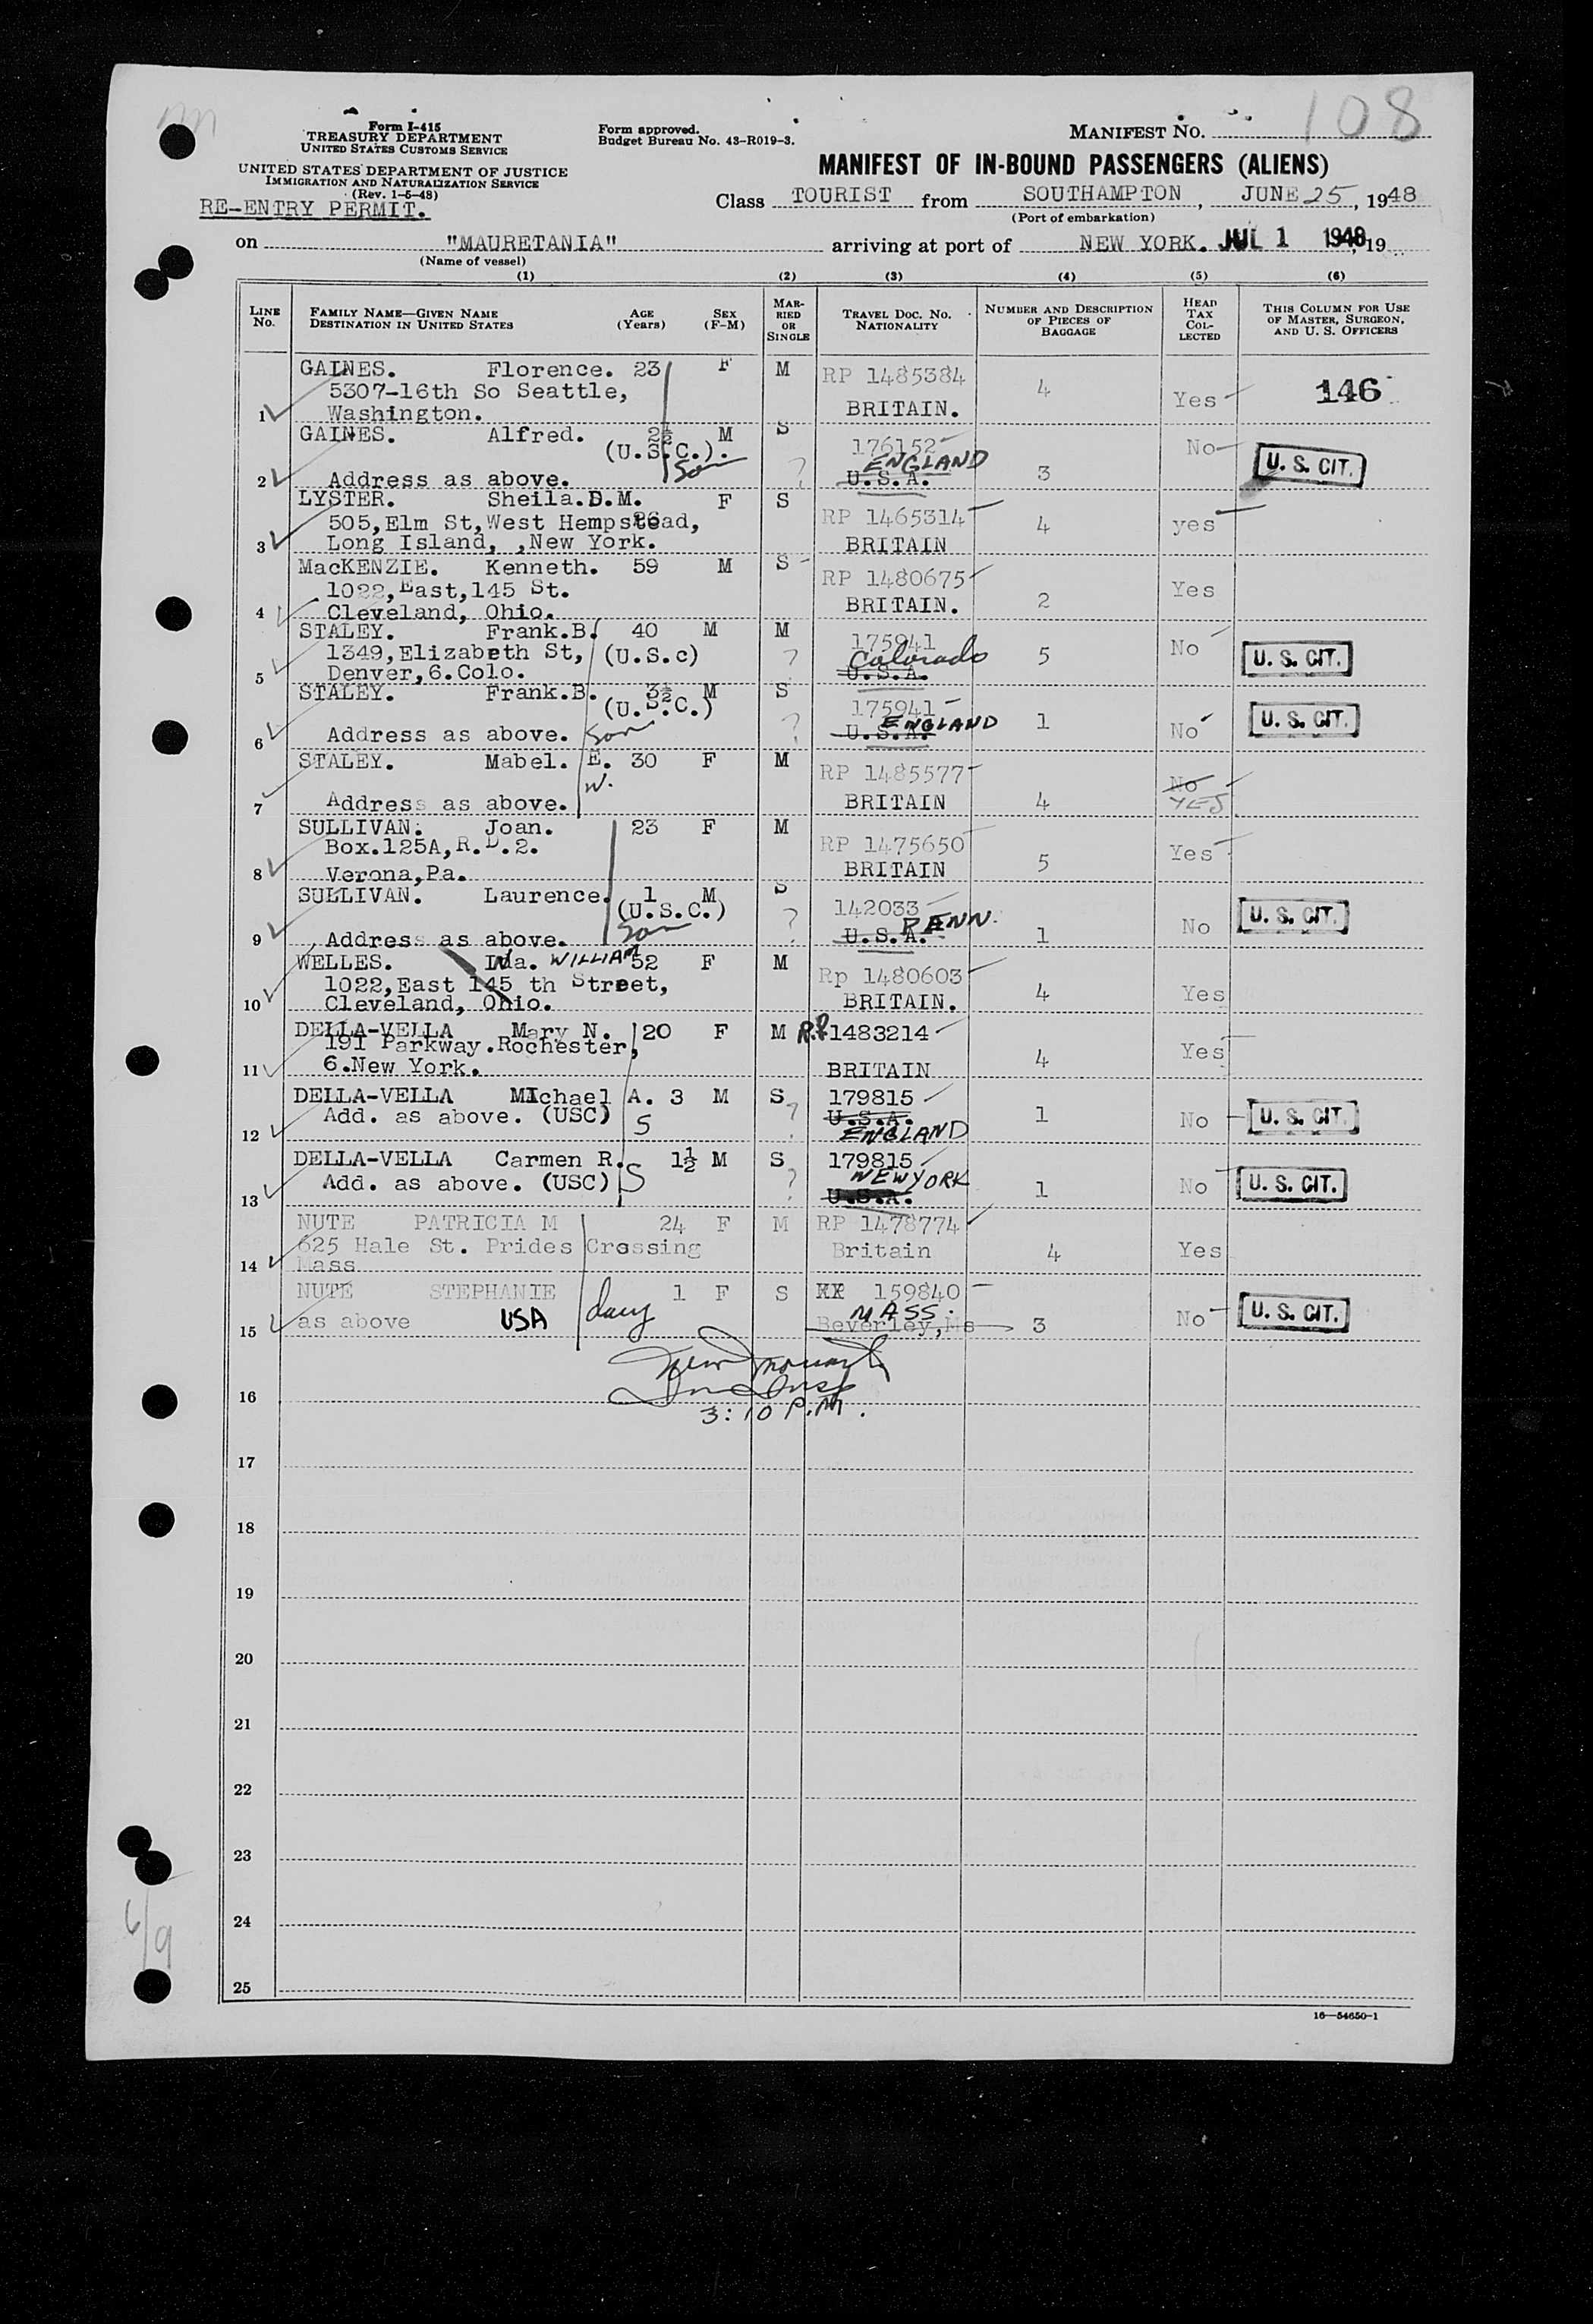 108
Form I-415
TREASURY DEPARTMENT
UNITED STATES CUSTOMS SERVICE
Form approved.
Budget Bureau No. 43-R019-3.
MANIFEST NO.
UNITED STATES DEPARTMENT OF JUSTICE
IMMIGRATION AND NATURALIZATION SERVICE
(Rev. 1-5-48)
MANIFEST OF IN-BOUND PASSENGERS (ALIENS)
RE-ENTRY PERMIT.
Class TOURIST from SOUTHAMPTON, JUNE 25, 1948
(Port of embarkation)
on "MAURETANIA" arriving at port of NEW YORK. JUL 1 1948, 19
(Name of vessel)
(1) (2) (3) (4) (5) (6)
LINE No. FAMILY NAME—GIVEN NAME DESTINATION IN UNITED STATES AGE (Years) SEX (F-M) MARRIED OR SINGLE TRAVEL DOC. NO. NATIONALITY NUMBER AND DESCRIPTION OF PIECES OF BAGGAGE HEAD TAX COLLECTED THIS COLUMN FOR USE OF MASTER, SURGEON, AND U. S. OFFICERS
GAINES. Florence. 23 F M RP 1485384
5307-16th So Seattle, 4 Yes 146
1 Washington. BRITAIN.
GAINES. Alfred. 2½ M S 176152 No
(U.S.C.). ENGLAND U. S. CIT.
2 Address as above. Son ? U.S.A. 3
LYSTER. Sheila.D.M. F S RP 1465314
505,Elm St,West Hempstead, 26 4 yes
3 Long Island, ,New York. BRITAIN
MacKENZIE. Kenneth. 59 M S RP 1480675
1022,East,145 St. Yes
4 Cleveland, Ohio. BRITAIN. 2
STALEY. Frank.B. 40 M M 175941 No
1349,Elizabeth St, (U.S.c) ? Colorado 5 U. S. CIT.
5 Denver,6.Colo. U.S.A.
STALEY. Frank.B. 3½ M S 175941
(U.S.C.) ENGLAND 1 U. S. CIT.
6 Address as above. Son ? U.S.A. No
STALEY. Mabel. E. 30 F M RP 1485577
W. No
7 Address as above. BRITAIN 4 YES
SULLIVAN. Joan. 23 F M
Box.125A,R.D.2. RP 1475650 Yes
8 Verona,Pa. BRITAIN 5
SULLIVAN. Laurence. 1 M S 142033
(U.S.C.) ? PENN. No U. S. CIT.
9 Address as above. Son U.S.A. 1
WELLES. Ida. WILLIAM 52 F M Rp 1480603
1022,East 145 th Street, 4 Yes
10 Cleveland, Ohio. BRITAIN.
DELLA-VELLA Mary N. 20 F M R.P. 1483214
191 Parkway.Rochester, 4 Yes
11 6.New York. BRITAIN
DELLA-VELLA MIchael A. 3 M S 179815
Add. as above. (USC) S ? U.S.A. 1 No U. S. CIT.
12 ENGLAND
DELLA-VELLA Carmen R. 1½ M S 179815
Add. as above. (USC) S ? NEWYORK 1 No U. S. CIT.
13 U.S.A.
NUTE PATRICIA M 24 F M RP 1478774
625 Hale St. Prides Crossing Britain 4 Yes
14 Mass
NUTE STEPHANIE 1 F S 159840
MASS. U. S. CIT.
15 as above USA Beverley,Ms 3 No
3:10 P.M.
16
17
18
19
20
21
22
23
24
25
6/9
16—54650-1